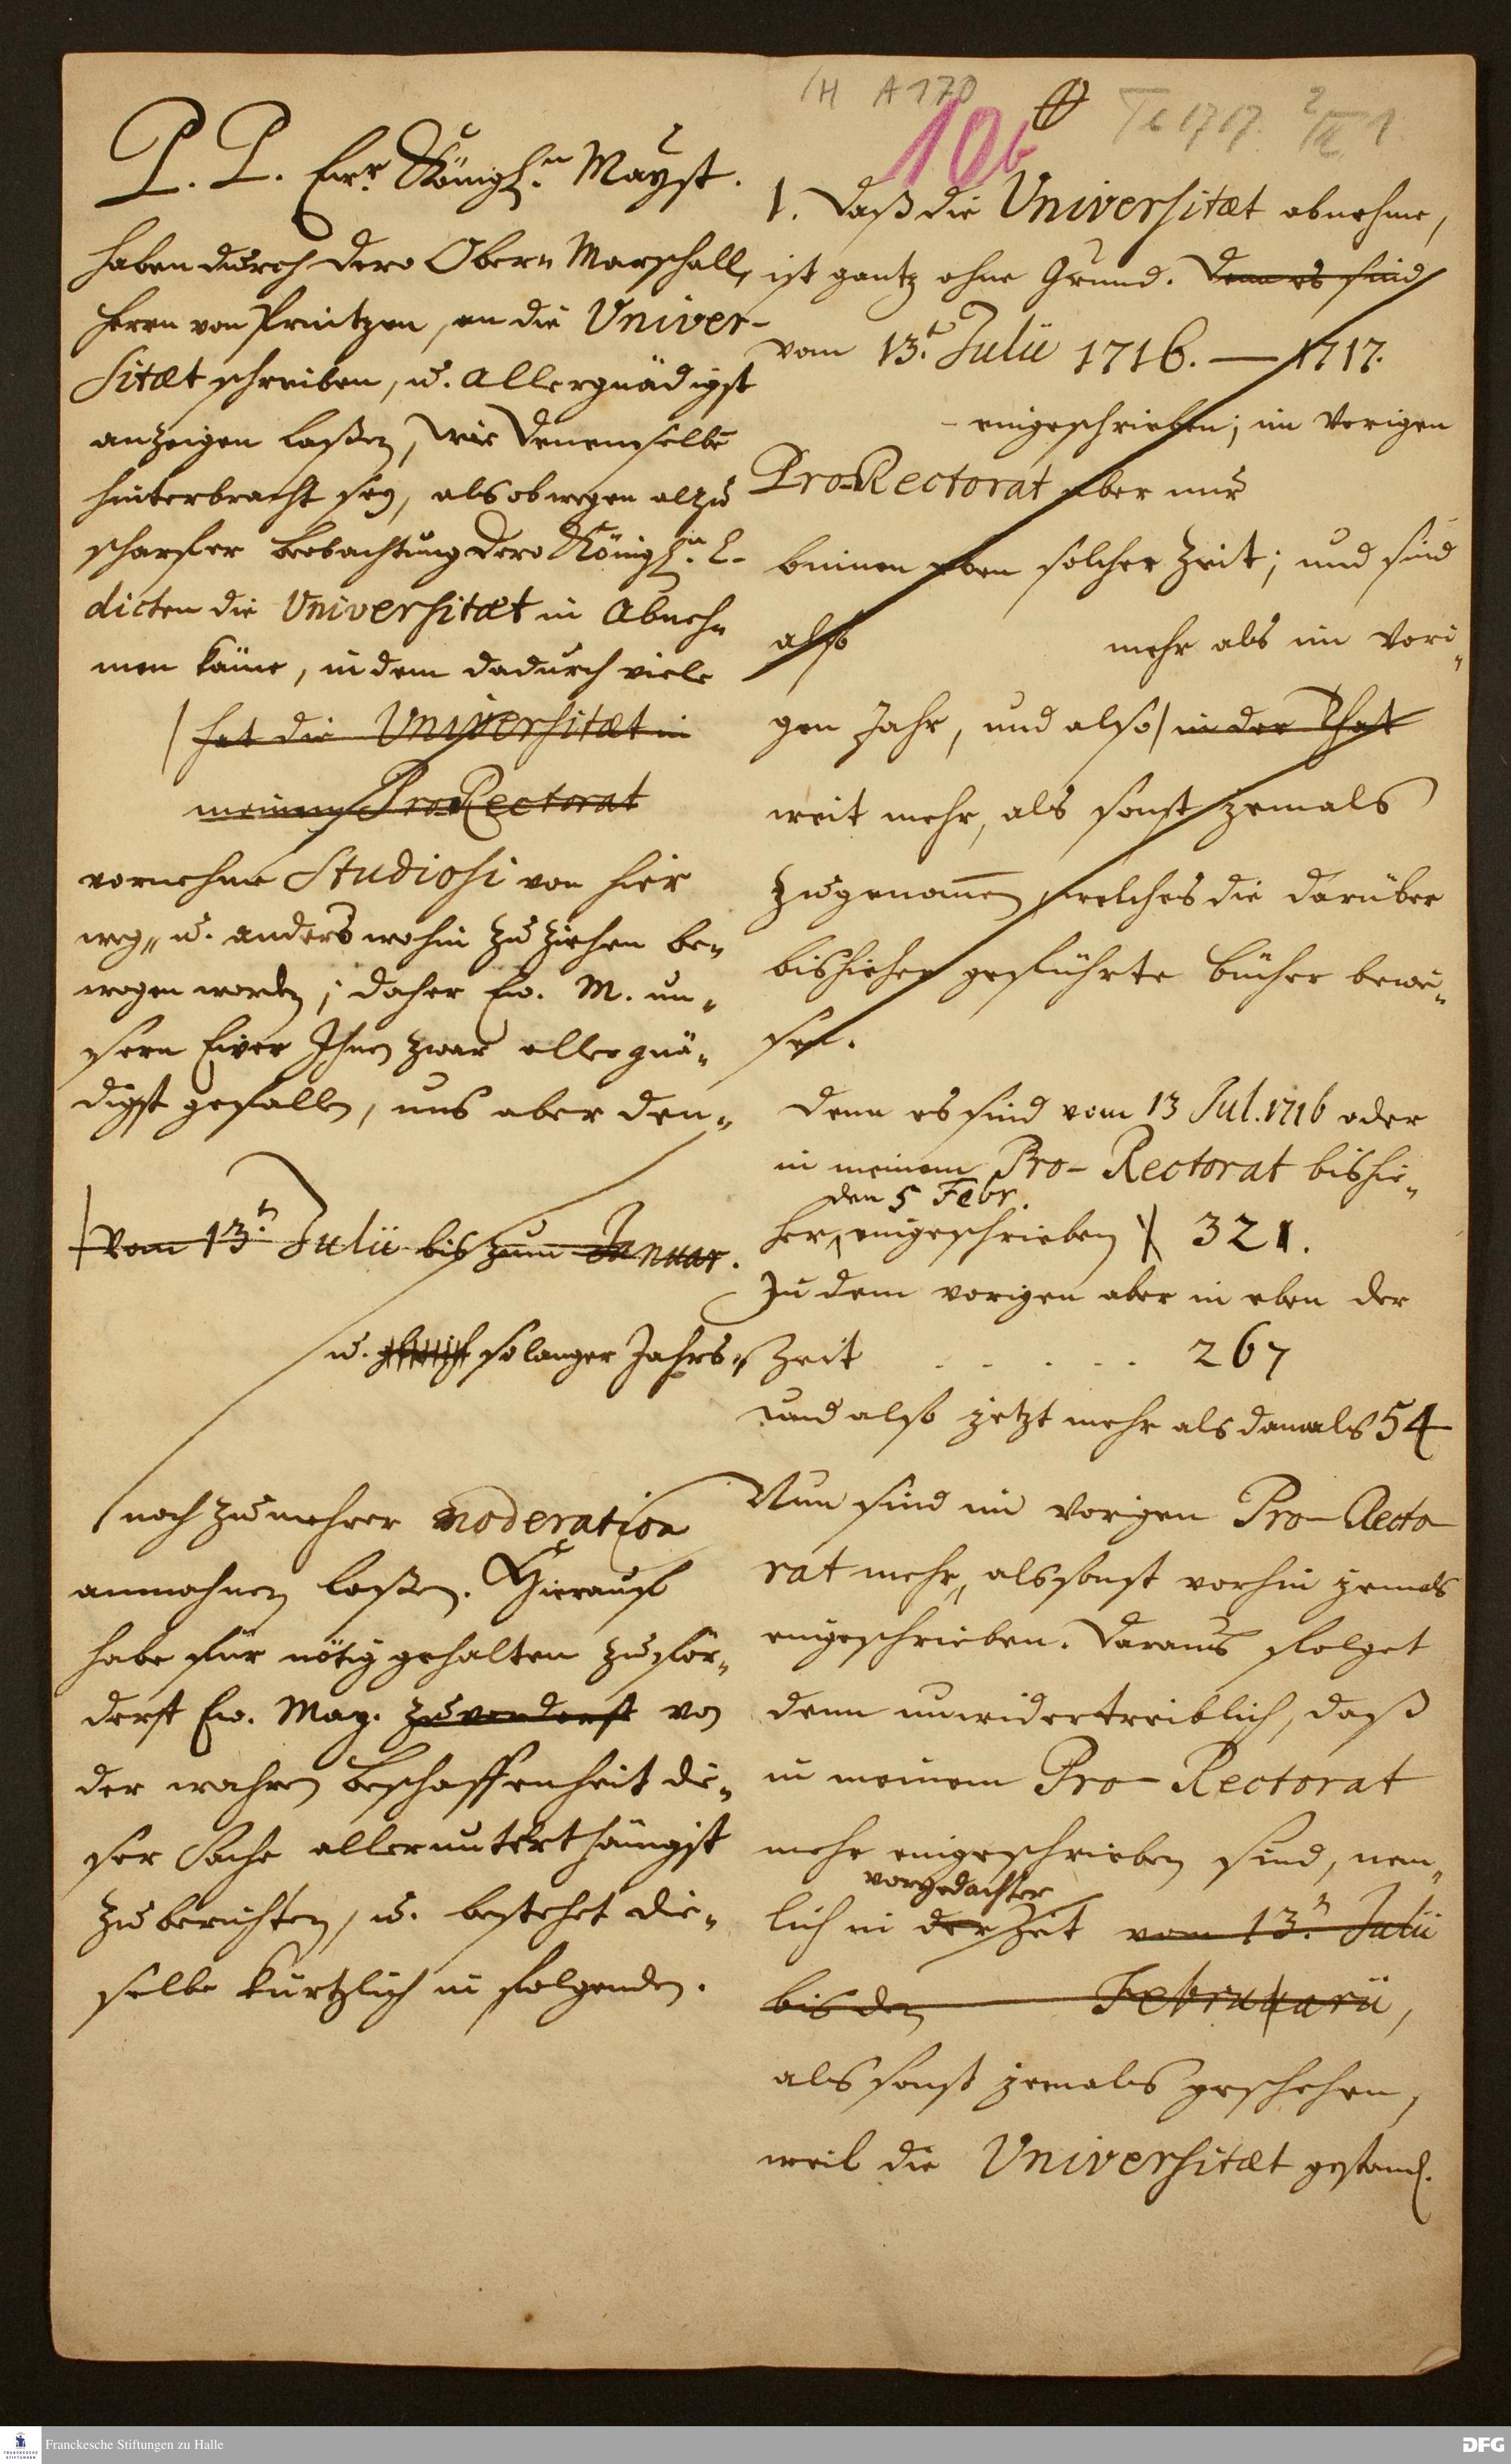 /H A 170
10b
Fe 1717. 2/IX 1
P. P. Ewr. Königl.n Mayst.
haben durch dero Obern Marschall,
Herrn von Printzen, an die Univer-
sitæt schreiben, u. allergnädigst
anzeigen laßen, wie denenselbē
hinterbracht sey, als ob wegen alzu
scharfer beobachtung dero Königl.n E-
dicten die Universitæt in Abneh-
men käme, indem dadurch viele
hat die Universitæt in
meinem ProRectorat
vornehme Studiosi von hier
weg- u. anders wohin zu ziehen be-
wogen worden; daher Ew. M. un-
sern Eiver Ihnen zwar allergnä-
digst gefallen, uns aber den-
Vom 13.n Julii bis zum Januar.
u. so langer Jahrs-
noch zu mehrer moderation
anmahnen laßen. Hierauf
habe für nötig gehalten zuför-
derst Ew. May. zuvorderst von
der wahren Beschaffenheit die-
ser Sache allerunterthänigst
zu berichten, u. bestehet die-
selbe kürtzlich in folgenden.
1. Daß die Universitæt abnehme,
ist gantz ohne Grund. Denn es sind
vom 13.t Julii 1716. — 1717.
eingeschrieben; im Vorigen
ProRectorat aber nur
binnen eben solcher Zeit; und sind
also mehr als im Vori-
gen Jahr, und also in der That
weit mehr, als sonst jemals
zugenom̄en, welches die darüber
bishieher geführte bücher bewei-
sen.
Denn es sind vom 13 Jul. 1716 oder
in meinem Pro-Rectorat bishie-
den 5 Febr.
her, eingeschrieben 321.
In dem vorigen aber in eben der
Zeit . . . . . . 267
und also jetzt mehr als damals 54
Nun sind im Vorigen Pro-Recto-
rat mehr, als sonst vorhin jemals
eingeschrieben. Daraus folget
denn unwidertreiblich, daß
in meinem Pro-Rectorat
mehr eingeschrieben sind, nem-
vorgedachter
lich in der Zeit vom 13.n Julii
bis den Februarii,
als sonst jemals geschehen,
weil die Universitæt gestand.
Franckesche Stiftungen zu Halle
FRANCKESCHE STIFTUNGEN
DFG